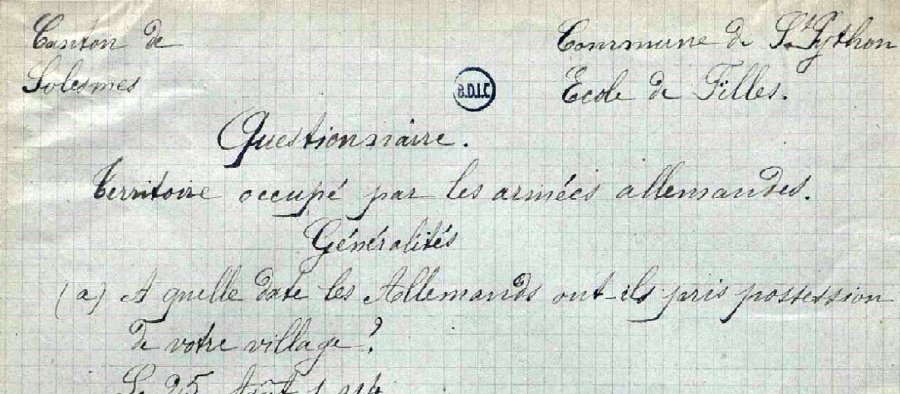 Canton de
Solesmes
Commune de St Python
Ecole de Filles.
B.D.I.C
Questionnaire.
Territoire occupé par les armées allemandes.
Généralités
(a) A quelle date les Allemands ont-ils pris possession
de votre village?
Le 25 Août